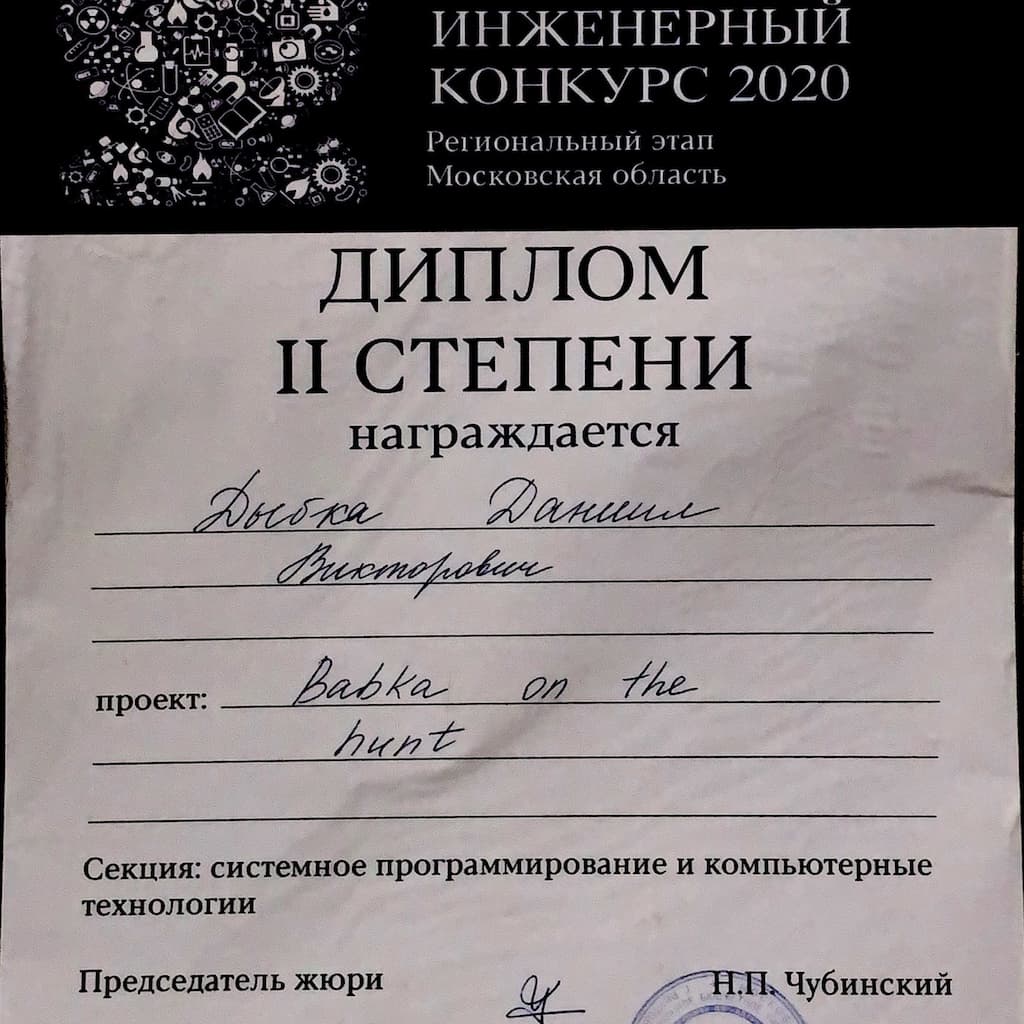 ИНЖЕНЕРНЫЙ
КОНКУРС 2020
Региональный этап
Московская область
ДИПЛОМ
II СТЕПЕНИ
награждается
Дыбка Даниил
Викторович
проект: Babka on the
hunt
Секция: системное программирование и компьютерные
технологии
Председатель жюри Н.П. Чубинский